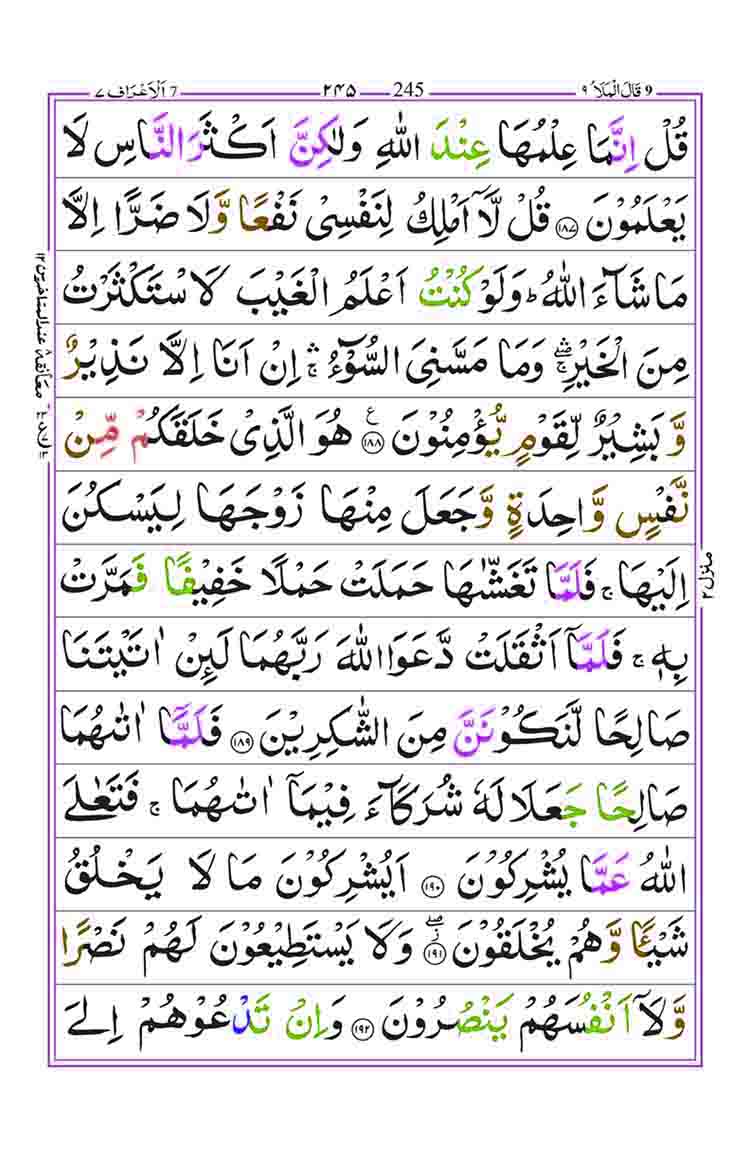 9 قَالَ الْمَلَاُ ٩ 245 ٢٤٥ 7 اَلْاَعْرَاف ٧
قُلْ اِنَّمَا عِلْمُهَا عِنْدَ اللّٰهِ وَلٰكِنَّ اَكْثَرَ النَّاسِ لَا
يَعْلَمُوْنَ ۝١٨٧ قُلْ لَّاۤ اَمْلِكُ لِنَفْسِىْ نَفْعًا وَّلَا ضَرًّا اِلَّا
مَا شَآءَ اللّٰهُ ؕ وَلَوْ كُنْتُ اَعْلَمُ الْغَيْبَ لَاسْتَكْثَرْتُ
مِنَ الْخَيْرِ ۛۚ وَمَا مَسَّنِىَ السُّوْٓءُ ۛۚ اِنْ اَنَا اِلَّا نَذِيْرٌ
وَّ بَشِيْرٌ لِّقَوْمٍ يُّؤْمِنُوْنَ ۝١٨٨ ع هُوَ الَّذِىْ خَلَقَكُمْ مِّنْ
نَّفْسٍ وَّاحِدَةٍ وَّجَعَلَ مِنْهَا زَوْجَهَا لِيَسْكُنَ
اِلَيْهَا ۚ فَلَمَّا تَغَشّٰٮهَا حَمَلَتْ حَمْلًا خَفِيْفًا فَمَرَّتْ
بِهٖ ۚ فَلَمَّاۤ اَثْقَلَتْ دَّعَوَا اللّٰهَ رَبَّهُمَا لَئِنْ اٰتَيْتَنَا
صَالِحًا لَّنَكُوْنَنَّ مِنَ الشّٰكِرِيْنَ ۝١٨٩ فَلَمَّاۤ اٰتٰٮهُمَا
صَالِحًا جَعَلَا لَهٗ شُرَكَآءَ فِيْمَاۤ اٰتٰٮهُمَا ۚ فَتَعٰلَى
اللّٰهُ عَمَّا يُشْرِكُوْنَ ۝١٩٠ اَيُشْرِكُوْنَ مَا لَا يَخْلُقُ
شَيْـًٔا وَّهُمْ يُخْلَقُوْنَ ۝١٩١ۖز وَلَا يَسْتَطِيْعُوْنَ لَهُمْ نَصْرًا
وَّلَاۤ اَنْفُسَهُمْ يَنْصُرُوْنَ ۝١٩٢ وَاِنْ تَدْعُوْهُمْ اِلَى
منزل ٢
معانقة عند المتاخرين ١٢